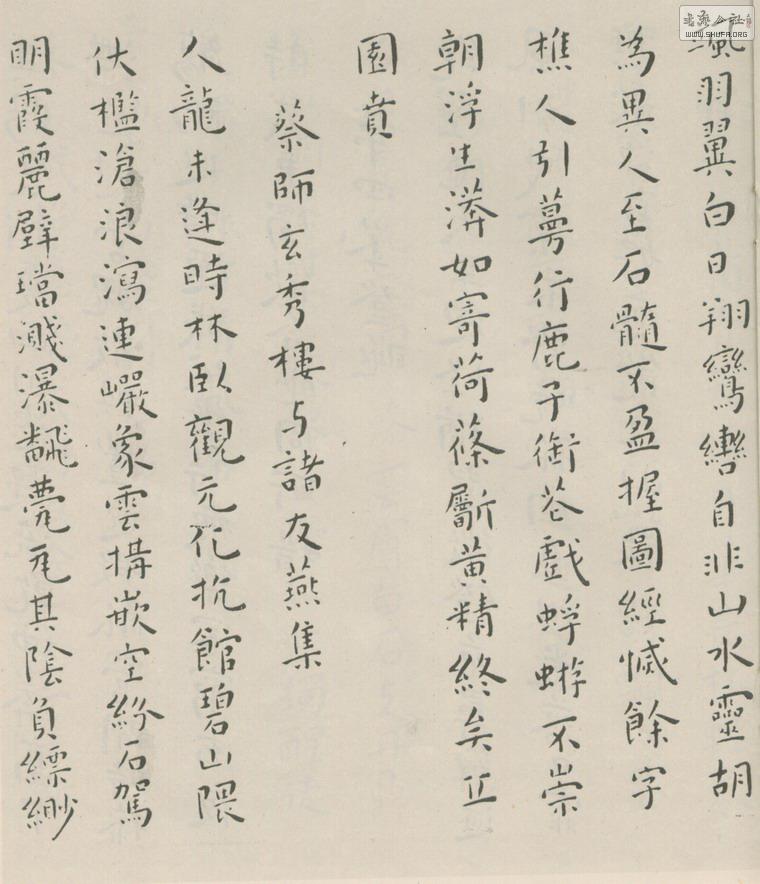 颯羽翼白日翔鸞轡自非山水靈胡
為異人至石髓不盈握圖經懴餘字
樵人引萼行鹿子銜花戲蜉蝣不崇
朝浮生渀如寄荷蓧斸黃精終矣丘
園賁
蔡師玄秀樓与諸友燕集
人龍未逢時林臥觀元化抗館碧山隈
伏檻滄浪瀉連巘象雲構嵌空紾石駕
明霞麗璧璫濺瀑飜甍瓦其陰負縹緲
書法公社
WWW.SHUFA.ORG